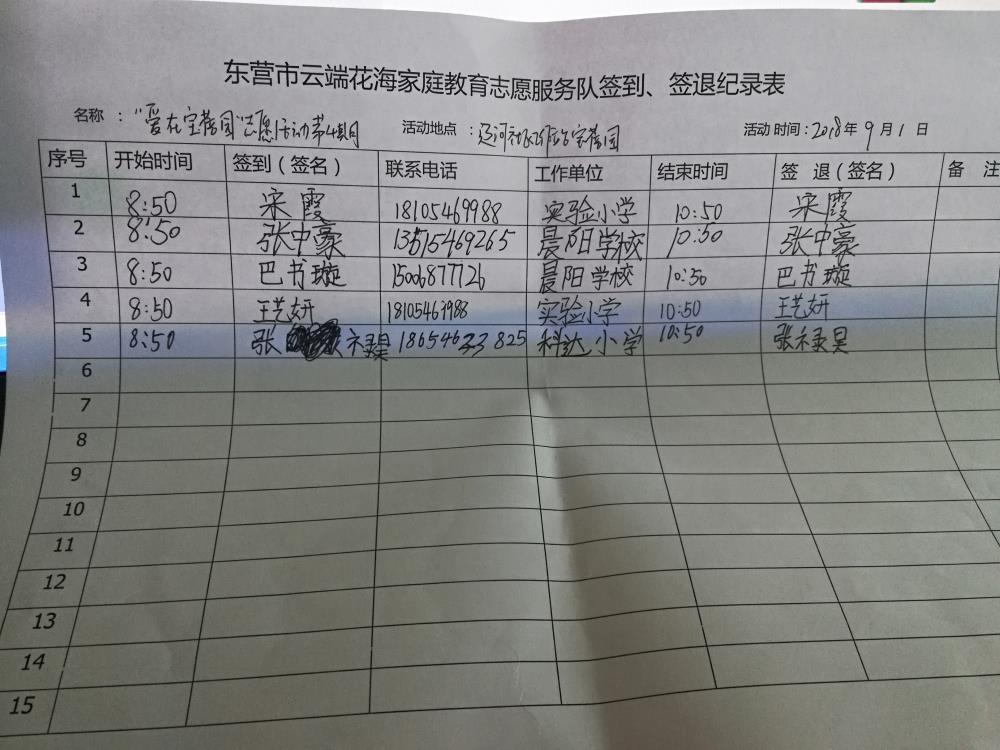 东营市云端花海家庭教育志愿服务队签到、签退纪录表
名称 ："爱在宝蓓园"志愿活动第4期 活动地点 ：辽河社区 宝蓓园 活动时间：2018年9月1日
序号 开始时间 签到（签名） 联系电话 工作单位 结束时间 签 退（签名） 备 注
1 8:50 宋霞 18105469988 实验小学 10:50 宋霞
2 8:50 张中豪 晨阳学校 10:50 张中豪
3 8:50 巴书璇 15006877126 晨阳学校 10:50 巴书璇
4 8:50 王艺妍 18105469988 实验小学 10:50 王艺妍
5 8:50 张禄昊 18654633825 科达小学 10:50 张禄昊
6
7
8
9
10
11
12
13
14
15